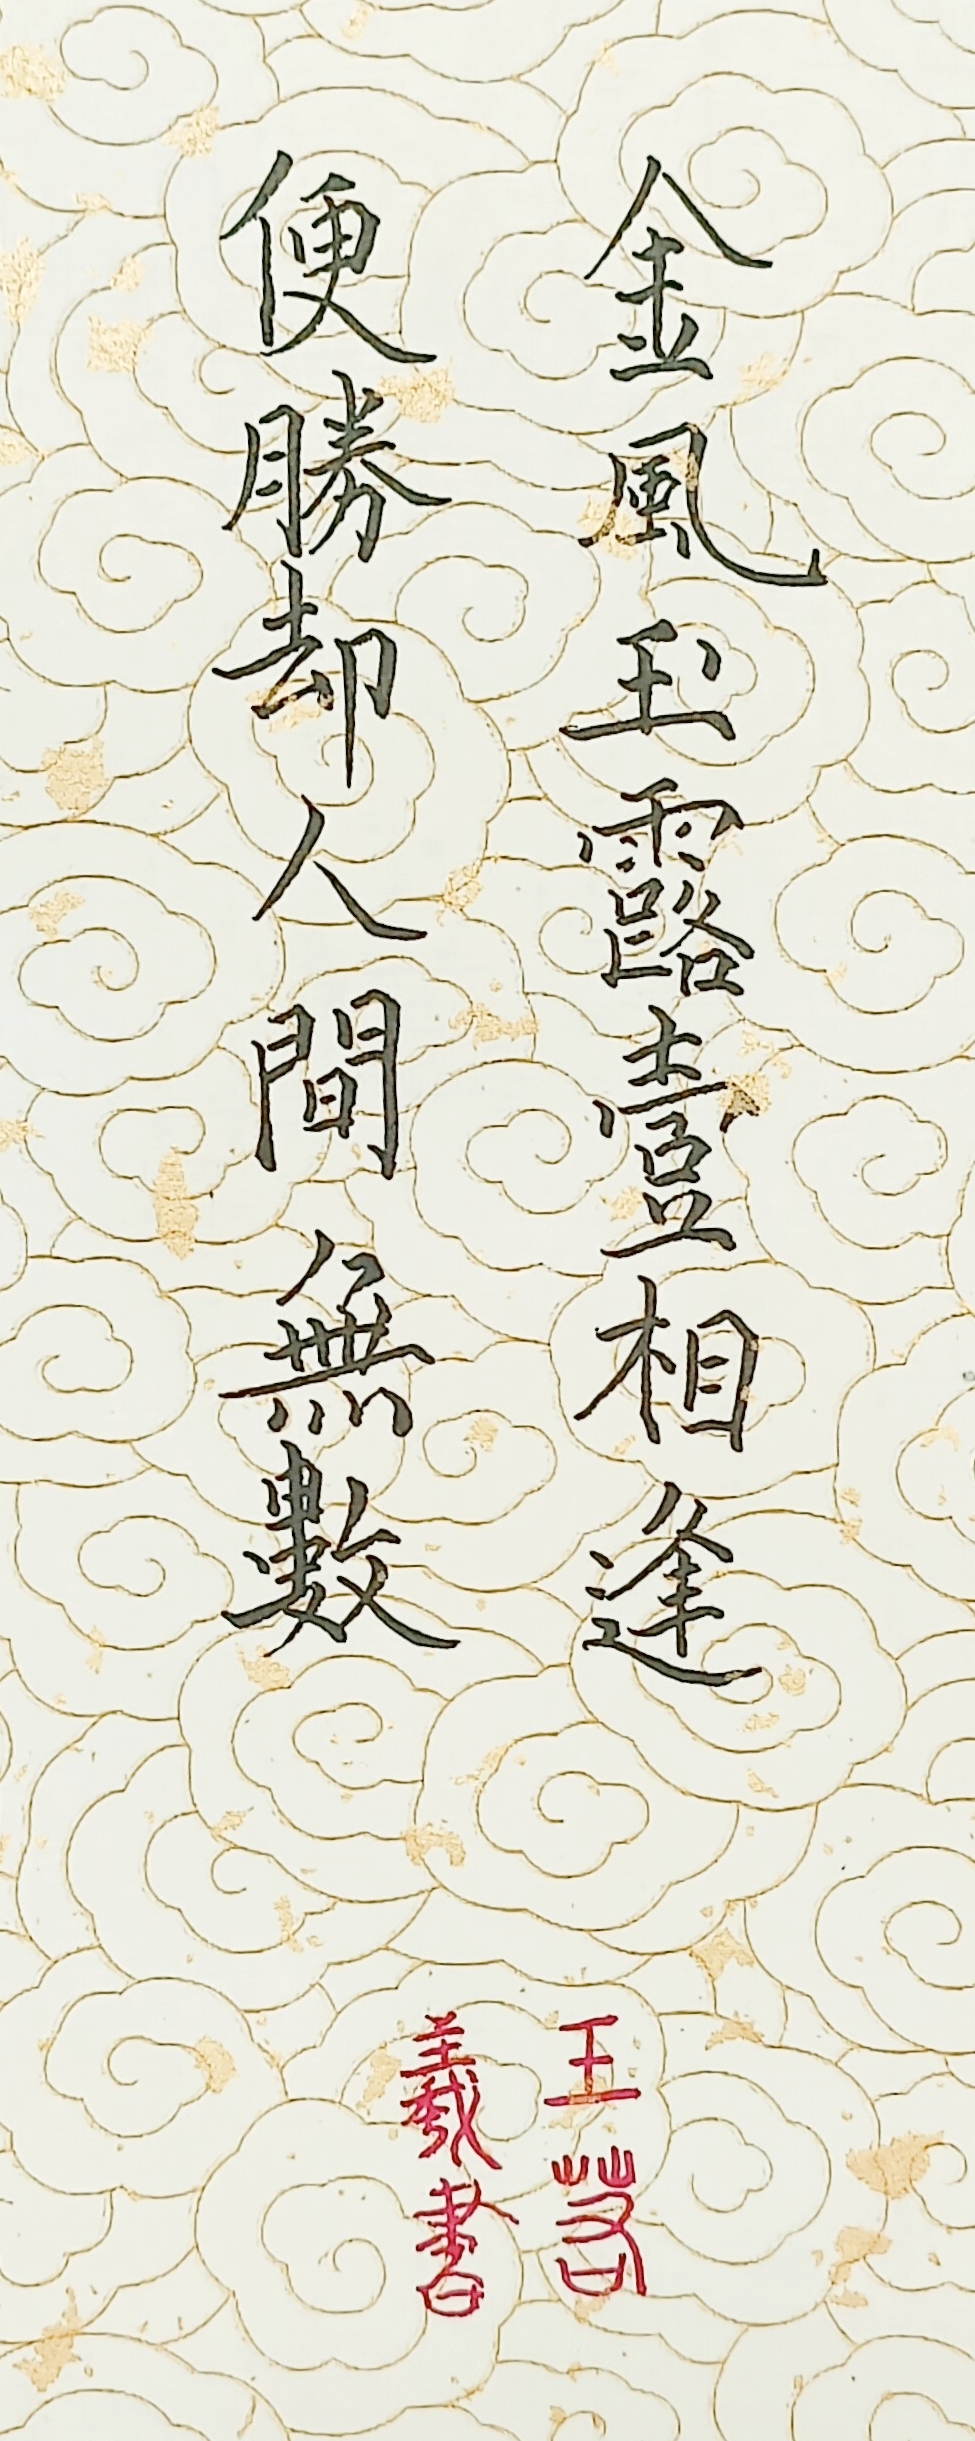 金風玉露壹相逢
便勝却人間無數
王若
羲書